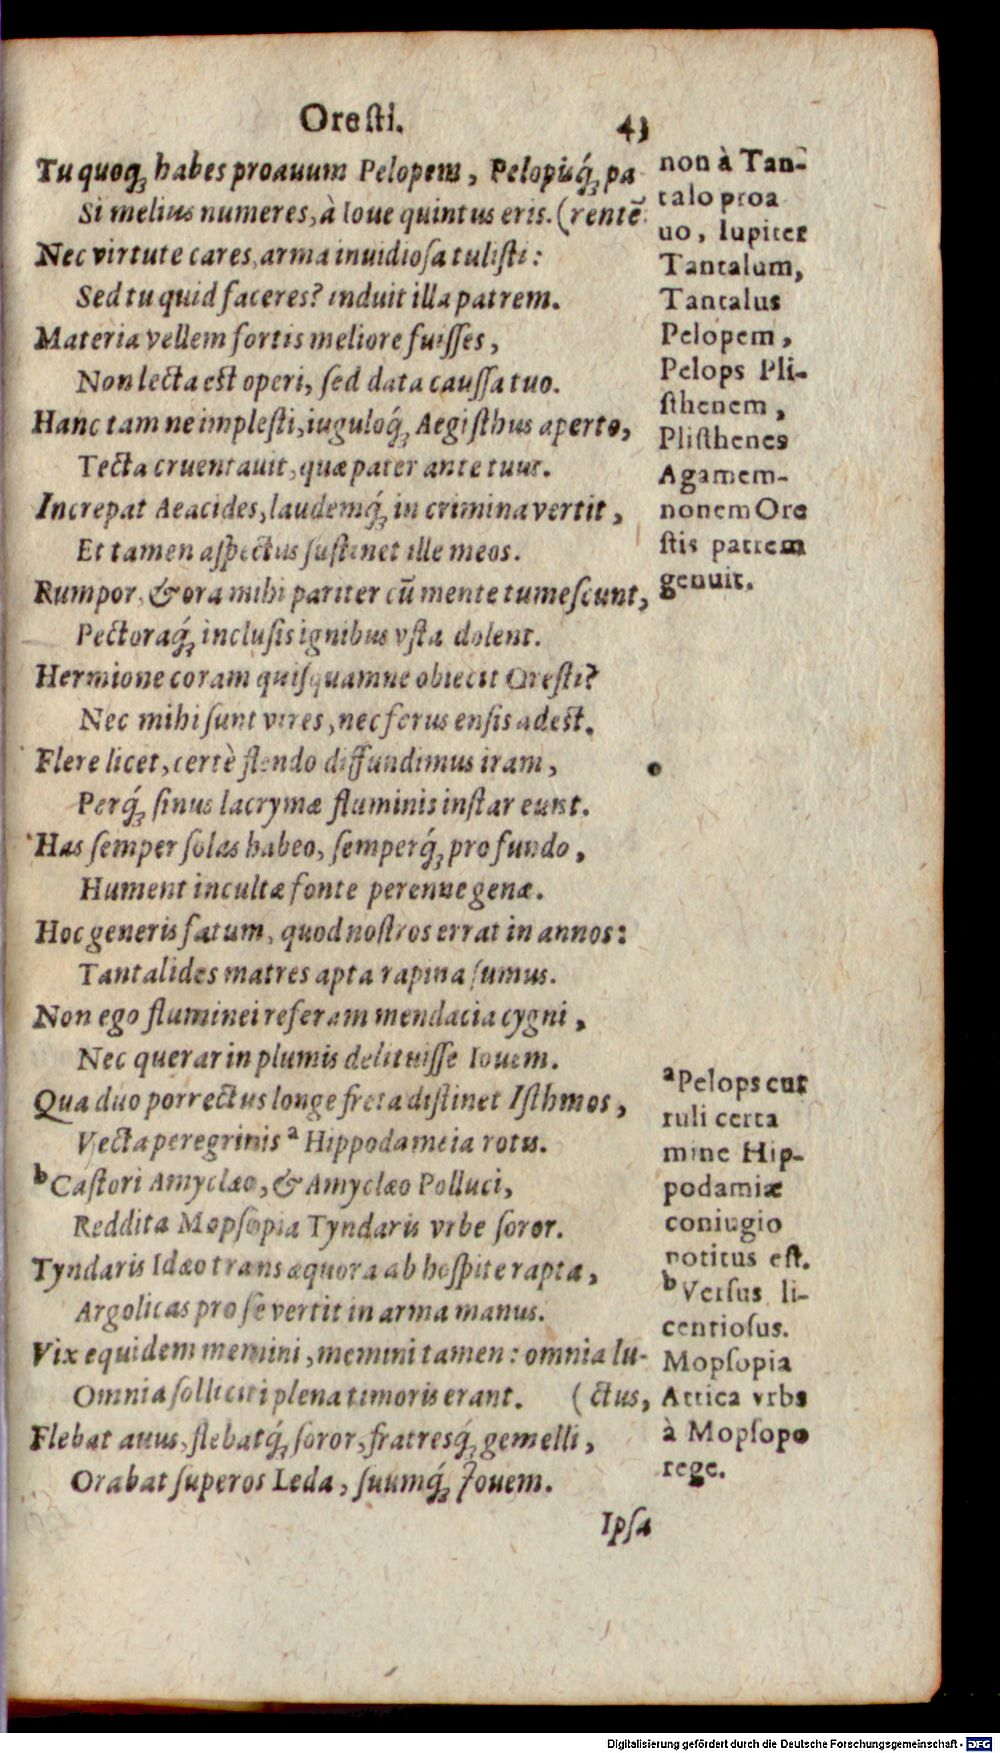 Oresti.
43
Tu quoq; habes proauum Pelopem, Pelopisq́; pa
Si melius numeres, à Ioue quintus eris. (rentē:
Nec virtute cares, arma inuidiosa tulisti:
Sed tu quid faceres? induit illa patrem.
Materia vellem fortis meliore fuisses,
Non lecta est operi, sed data caussa tuo.
Hanc tamne implesti, iuguloq́; Aegisthus aperto,
Tecta cruentauit, quæ pater ante tuus.
Increpat Aeacides, laudemq́; in crimina vertit,
Et tamen aspectus sustinet ille meos.
Rumpor, & ora mihi pariter cū mente tumescunt,
Pectoraq́; inclusis ignibus vsta dolent.
Hermione coram quisquamne obiecit Oresti?
Nec mihi sunt vires, nec ferus ensis adest.
Flere licet, certè flendo diffundimus iram,
Perq́; sinus lacrymæ fluminis instar eunt.
Has semper solas habeo, semperq́; profundo,
Hument incultæ fonte perenne genæ.
Hoc generis fatum, quod nostros errat in annos:
Tantalides matres apta rapina sumus.
Non ego fluminei referam mendacia cygni,
Nec querar in plumis delituisse Iouem.
Qua duo porrectus longe freta distinet Isthmos,
Vecta peregrinis ª Hippodameia rotis.
ᵇ Castori Amyclæo, & Amyclæo Polluci,
Reddita Mopsopia Tyndaris vrbe soror.
Tyndaris Idæo trans æquora ab hospite rapta,
Argolicas pro se vertit in arma manus.
Vix equidem memini, memini tamen: omnia lu-
Omnia solliciti plena timoris erant. (ctus,
Flebat auus, flebatq́; soror, fratresq́; gemelli,
Orabat superos Leda, suumq́; Iouem.
Ipsa
non à Tan-
talo proa
uo, Iupiter
Tantalum,
Tantalus
Pelopem,
Pelops Pli-
sthenem,
Plisthenes
Agamem-
nonem Ore
stis patrem
genuit.
ª Pelops cur
ruli certa
mine Hip-
podamiæ
coniugio
potitus est.
ᵇ Versus li-
centiosus.
Mopsopia
Attica vrbs
à Mopsopo
rege.
Digitalisierung gefördert durch die Deutsche Forschungsgemeinschaft - DFG